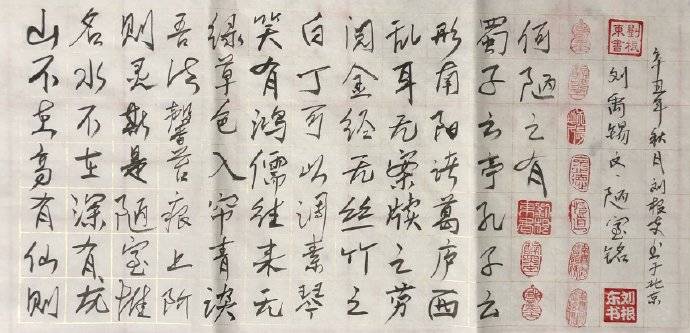 山不在高有仙则
名水不在深有龙
则灵斯是陋室惟
吾德馨苔痕上阶
绿草色入帘青谈
笑有鸿儒往来无
白丁可以调素琴
阅金经无丝竹之
乱耳无案牍之劳
形南阳诸葛庐西
蜀子云亭孔子云
何陋之有
劉根東書
刘禹锡文、陋室铭
劉根東書
刘根东书
辛丑年秋月刘根东书于北京